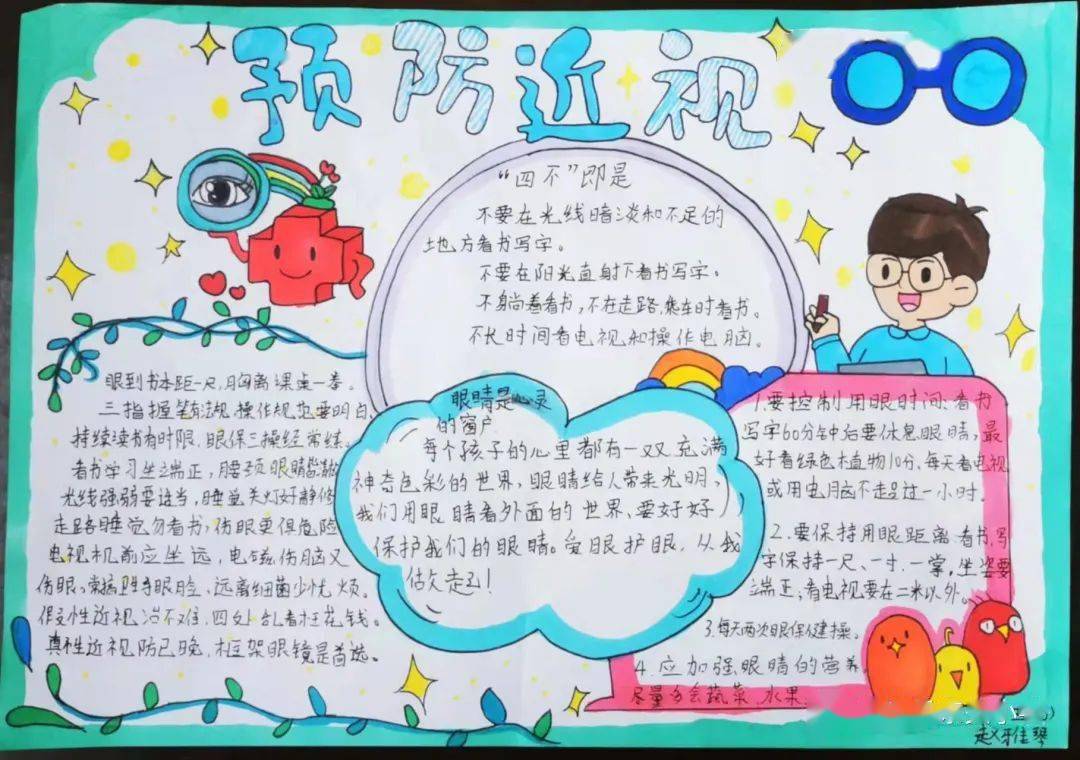 预防近视
“四不”即是
不要在光线暗淡和不足的
土地方看书写字。
不要在阳光直射下看书写字。
不躺着看书,不在走路,乘车时看书。
不长时间看电视和操作电脑。
眼到书本距一尺,胸离课桌一拳。
三指握笔有法规,操作规范要明白,
持续读书有时限,眼保三操经常练。
看书学习坐端正,腰颈眼睛
光线强弱要适当,睡觉关灯好静修
走路睡觉勿看书,伤眼更俱危险
电视机前应坐远,电磁伤脑又
伤眼,常搞卫生手眼脸,远离细菌少忧烦。
性近视治不难,四处乱看枉花钱。
真性近视防已晚,框架眼镜是首选。
眼睛是心灵
的窗户
每个孩子的心里都有一双充满
神奇色彩的世界,眼睛给人带来光明,
我们用眼睛看外面的世界、要好好
保护我们的眼睛。爱眼护眼,从我
做起!
1.要控制用眼时间:看书
写字60分钟后要休息眼睛,最
好看绿色植物10分,每天看电视
或用电脑不超过一小时。
2.要保持用眼距离 看书,写
字保持一尺、一寸.一掌,坐姿要
端正,看电视要在二米以外。
3.每天两次眼保健操。
4.应加强眼睛的营养,
尽量多会蔬菜,水果.
赵雅佳琴